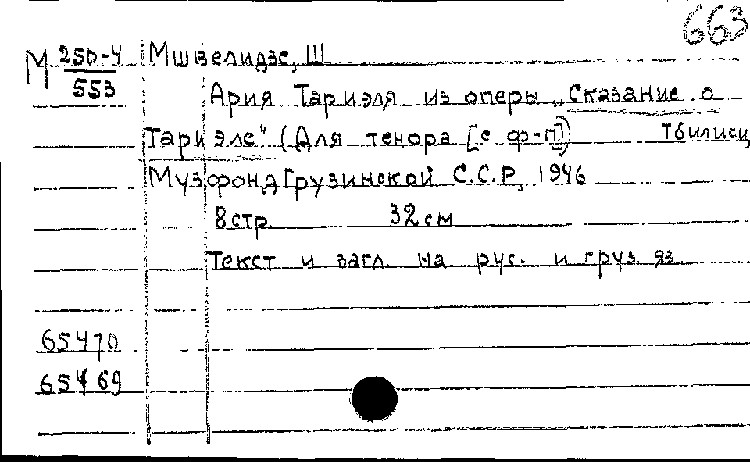 663
М 250-4 Мшвелидзе, Ш
553
Ария Тариэля из оперы „Сказание о
Тариэле" (Для тенора [с ф-п]) Тбилиси
Музфонд Грузинской С.С.Р, 1946
8 стр 32 см
Текст и загл на рус. и груз яз
65470
65469